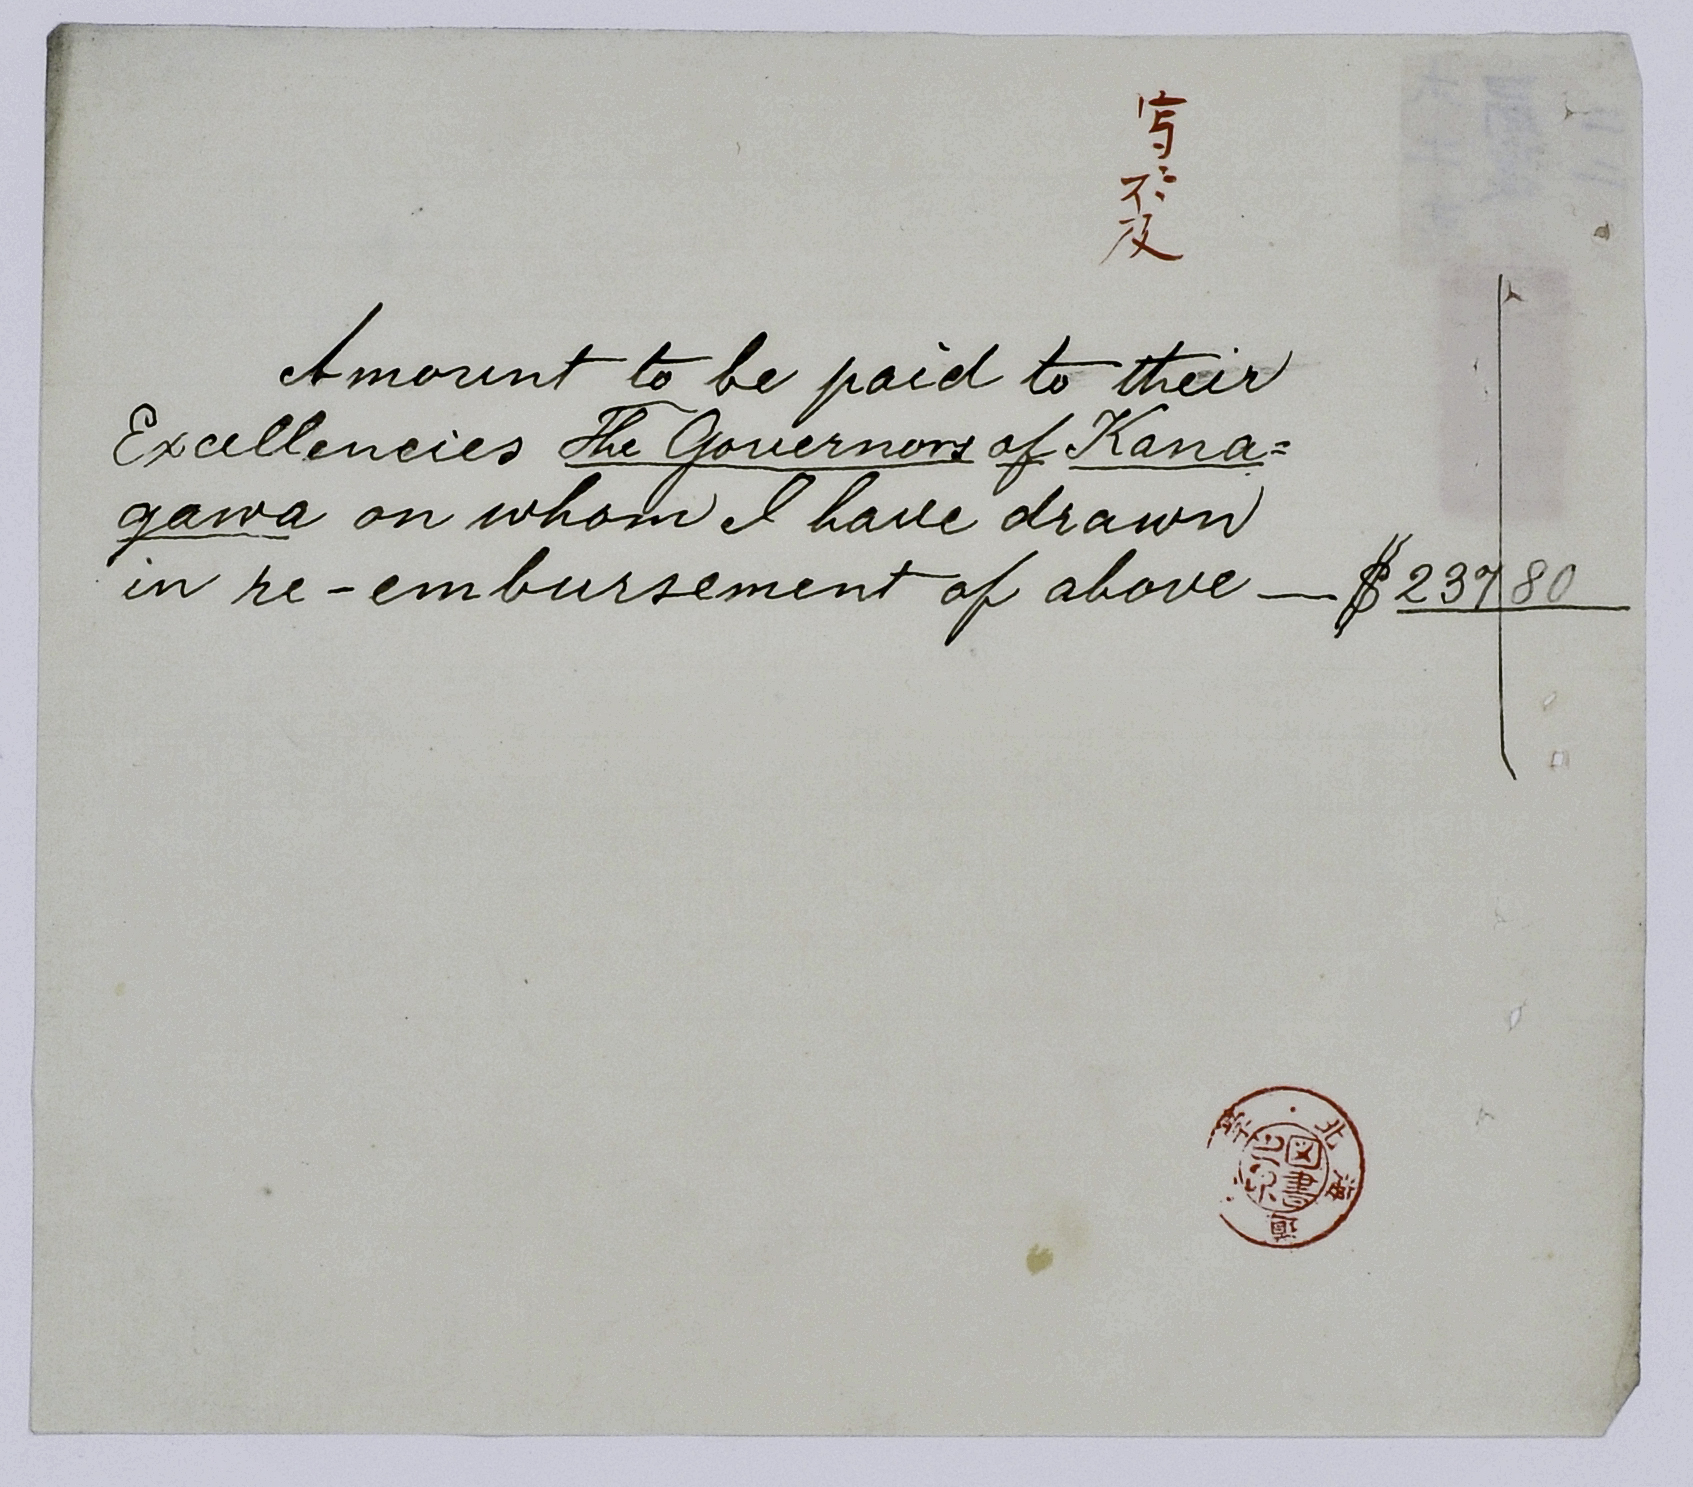 写不及
Amount to be paid to their
Excellencies The Governors of Kana=
gawa on whom I have drawn
in re-embursement of above — $ 237 80
北海道
図書